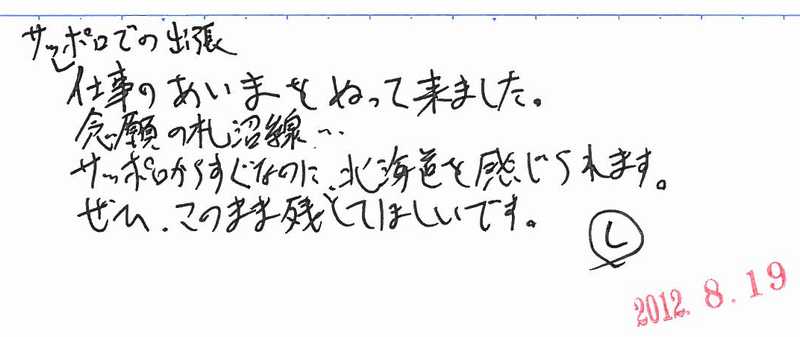 サッポロでの出張
仕事のあいまをぬって来ました。
念願の札沼線…
サッポロからすぐなのに、北海道を感じられます。
ぜひ、このまま残してほしいです。
し
2012. 8. 19